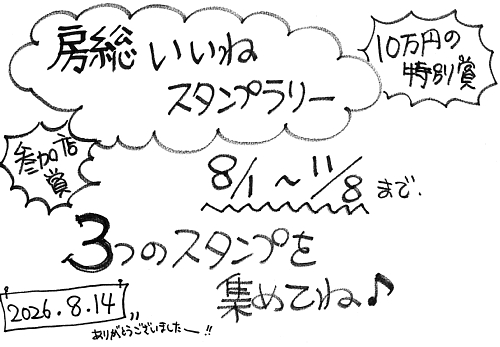 房総いいね
スタンプラリー
10万円の
特別賞
参加店
賞
8/1 〜 11/8 まで.
3つのスタンプを
集めてね♪
2026.8.14,,
ありがとうございましたー!!